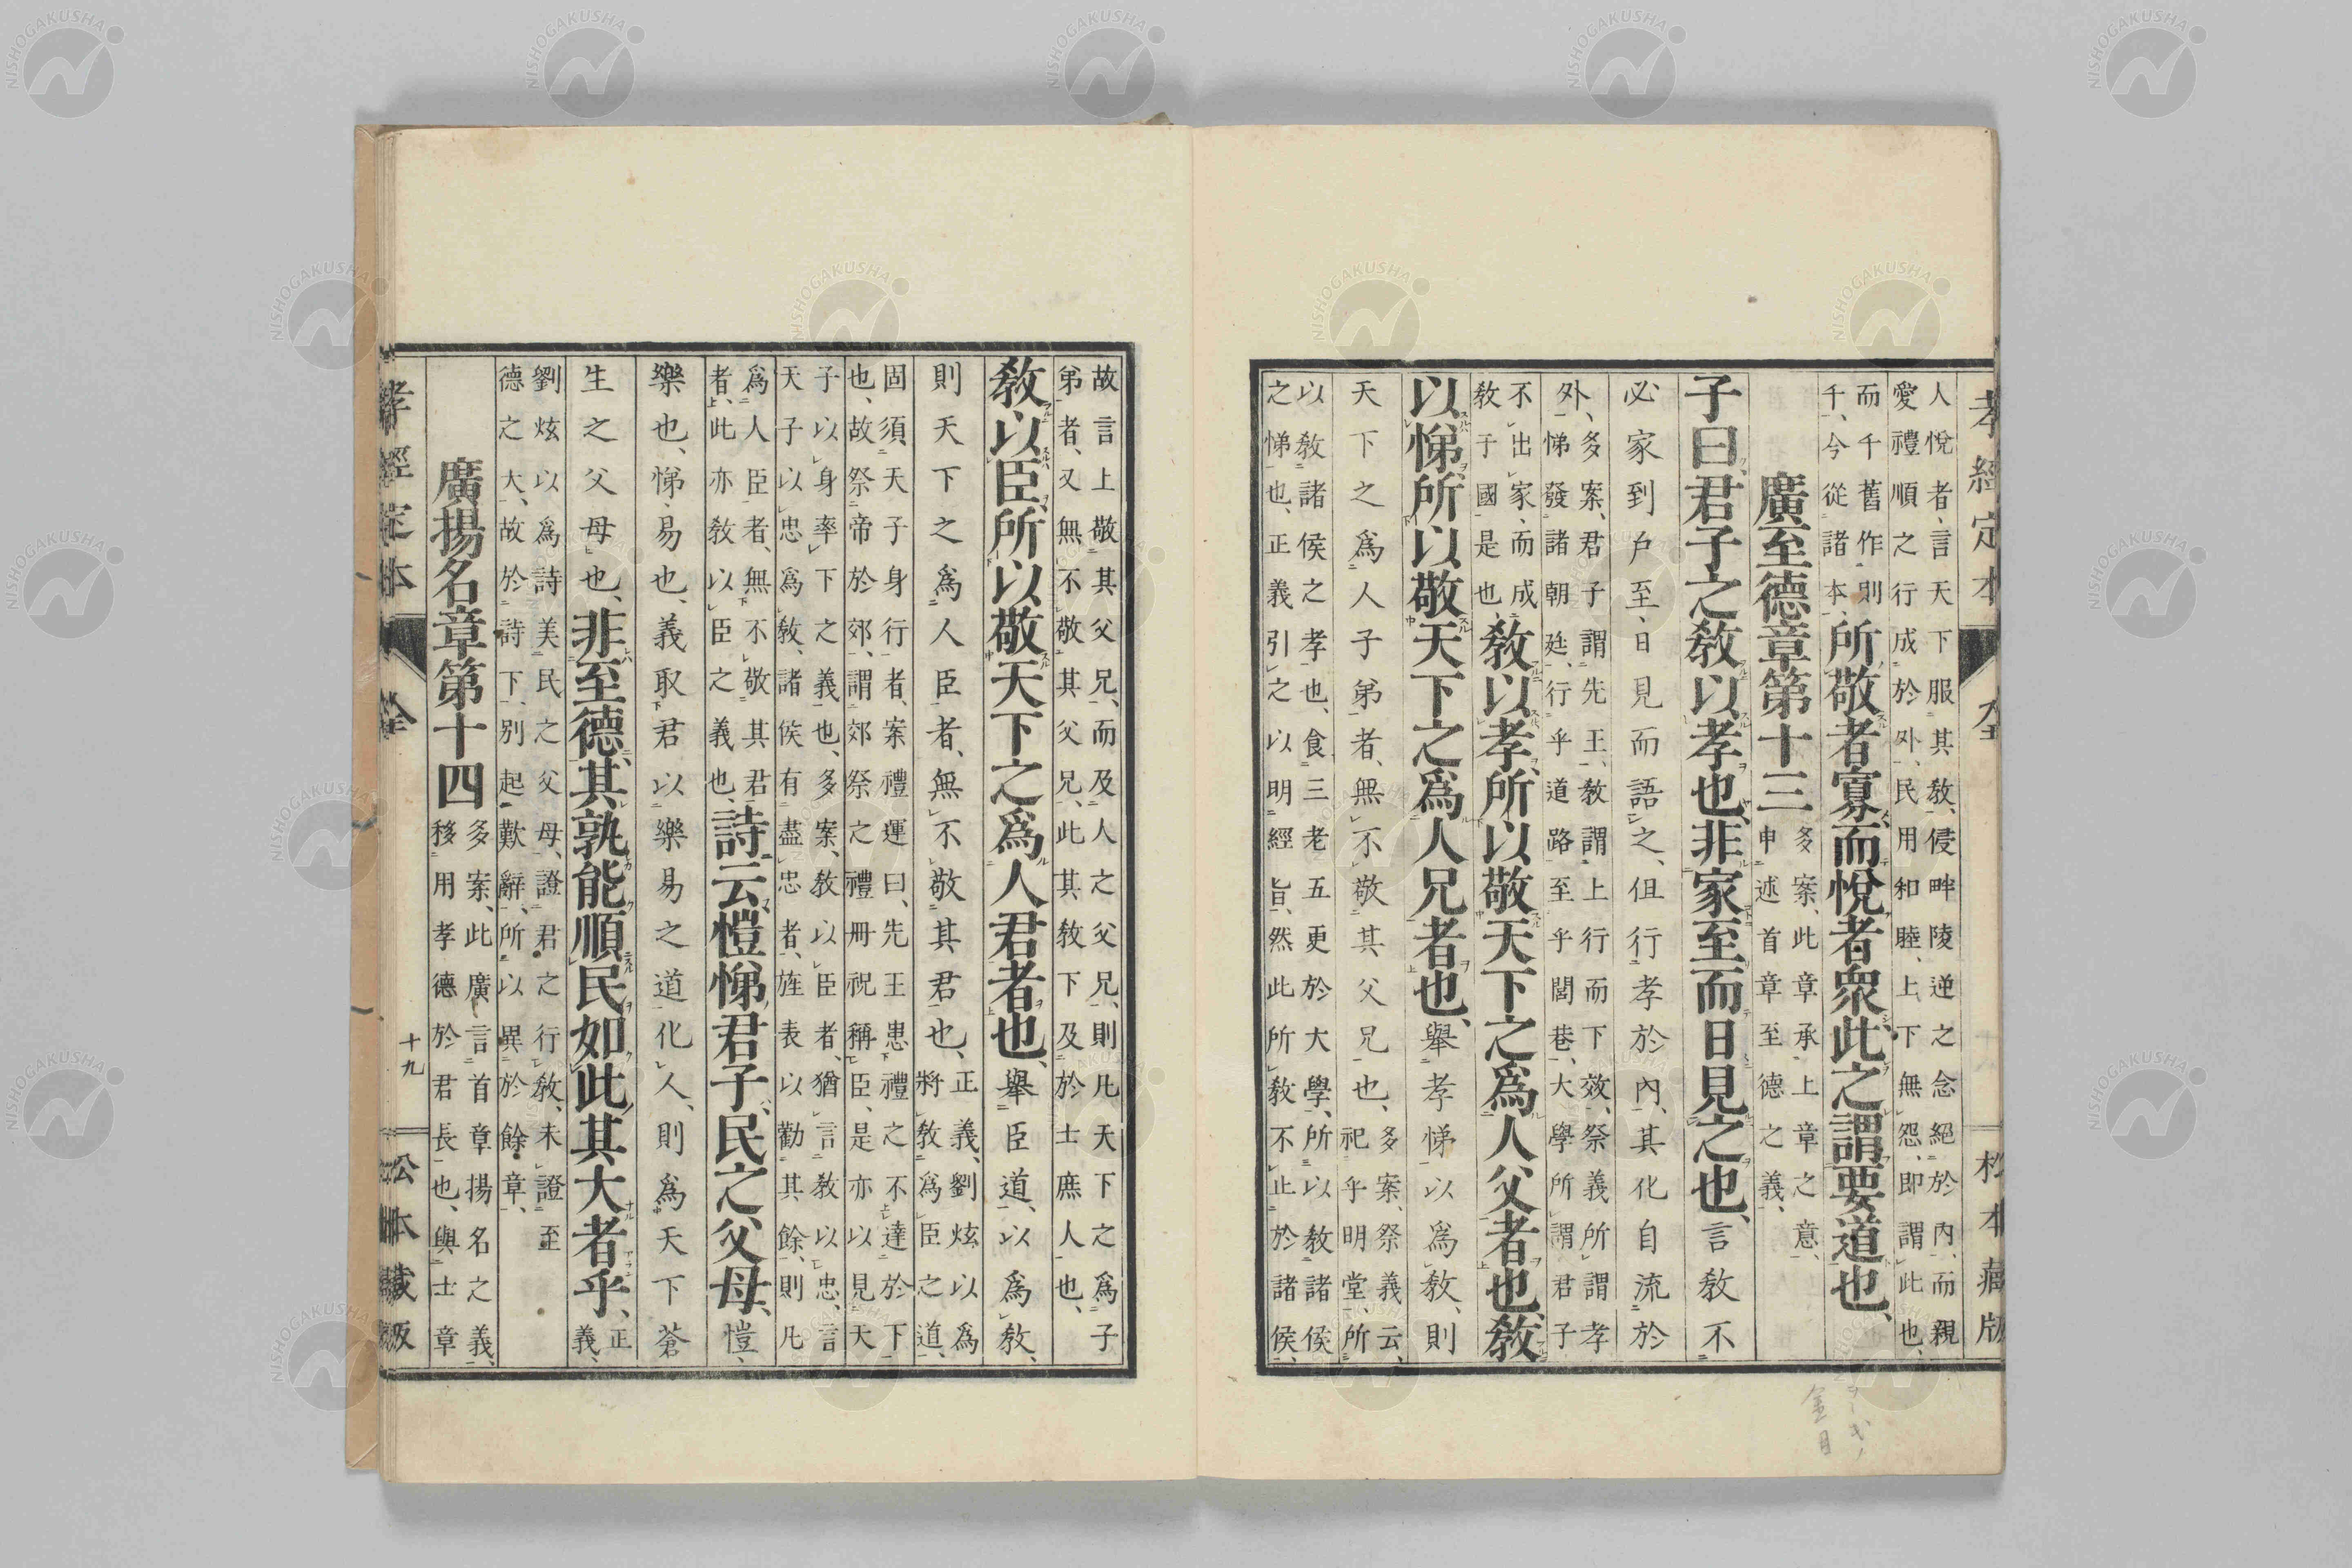 孝經定本 全 松本藏版
人悅者、言天下服其敎、侵畔陵逆之念絕於內、而親
愛禮順之行成於外、民用和睦、上下無怨、卽謂此也、
而千舊作則
千、今從諸本、
所敬者寡、而悅者衆、此之謂要道也、
廣至德章第十三
多案、此章承上章之意、
申述首章至德之義、
子曰、君子之敎以孝也、非家至而日見之也、言敎不
必家到戶至、日見而語之、但行孝於內、其化自流於
外、多案、君子謂先王、敎謂上行而下效、祭義所謂孝
悌發諸朝廷、行乎道路、至乎閭巷、大學所謂君子
不出家、而成
敎于國是也
敎以孝、所以敬天下之爲人父者也、敎
以悌、所以敬天下之爲人兄者也、舉孝悌以爲敎、則
天下之爲人子弟者、無不敬其父兄也、
多案、祭義云、
祀乎明堂、所
以敎諸侯之孝也、食三老五更於大學、所以敎諸侯
之悌也、正義引之以明經旨、然此所敎不止於諸侯、
故言上敬其父兄、而及人之父兄、則凡天下之爲子
弟者、又無不敬其父兄、此其敎下及於士庶人也、
敎以臣、所以敬天下之爲人君者也、舉臣道、以爲敎、
則天下之爲人臣者、無不敬其君也、
正義、劉炫以爲
將敎爲臣之道、
固須天子身行者、案禮運曰、先王患禮之不達於下
也、故祭帝於郊、謂郊祭之禮冊祝稱臣、是亦以見天
子以身率下之義也、多案、敎以臣者、猶言敎以忠、言
天子以忠爲敎、諸侯有盡忠者、旌表以勸其餘、則凡
爲人臣者、無不敬其君
者、此亦敎以臣之義也、
詩云、愷悌君子、民之父母、愷、
樂也、悌、易也、義取君以樂易之道化人、則爲天下蒼
生之父母也、非至德、其孰能順民如此其大者乎、
正
義、
劉炫以爲詩美民之父母、證君之行敎、未證至
德之大、故於詩下、別起歎辭、所以異於餘章、
廣揚名章第十四
多案、此廣言首章揚名之義、
移用孝德於君長也、與士章
孝經定本 全 十九 松本藏版